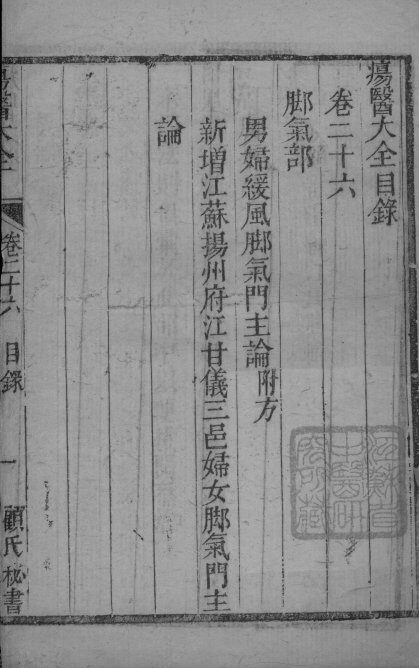 瘍醫大全目錄
卷二十六
脚氣部
男婦緩風脚氣門主論附方
新增江蘇揚州府江甘儀三邑婦女脚氣門主
論
瘍醫大全
卷二十六
目錄
一
顧氏秘書